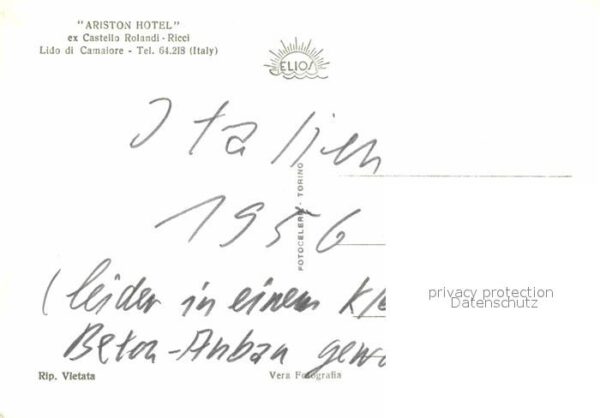 "ARISTON HOTEL"
ex Castello Rolandi - Ricci
Lido di Camaiore - Tel. 64.218 (Italy)
ELIOS
Italien
1956
(leider in einem
Beton-Anbau
FOTOCELERE - TORINO
privacy protection
Datenschutz
Rip. Vietata
Vera Fotografia